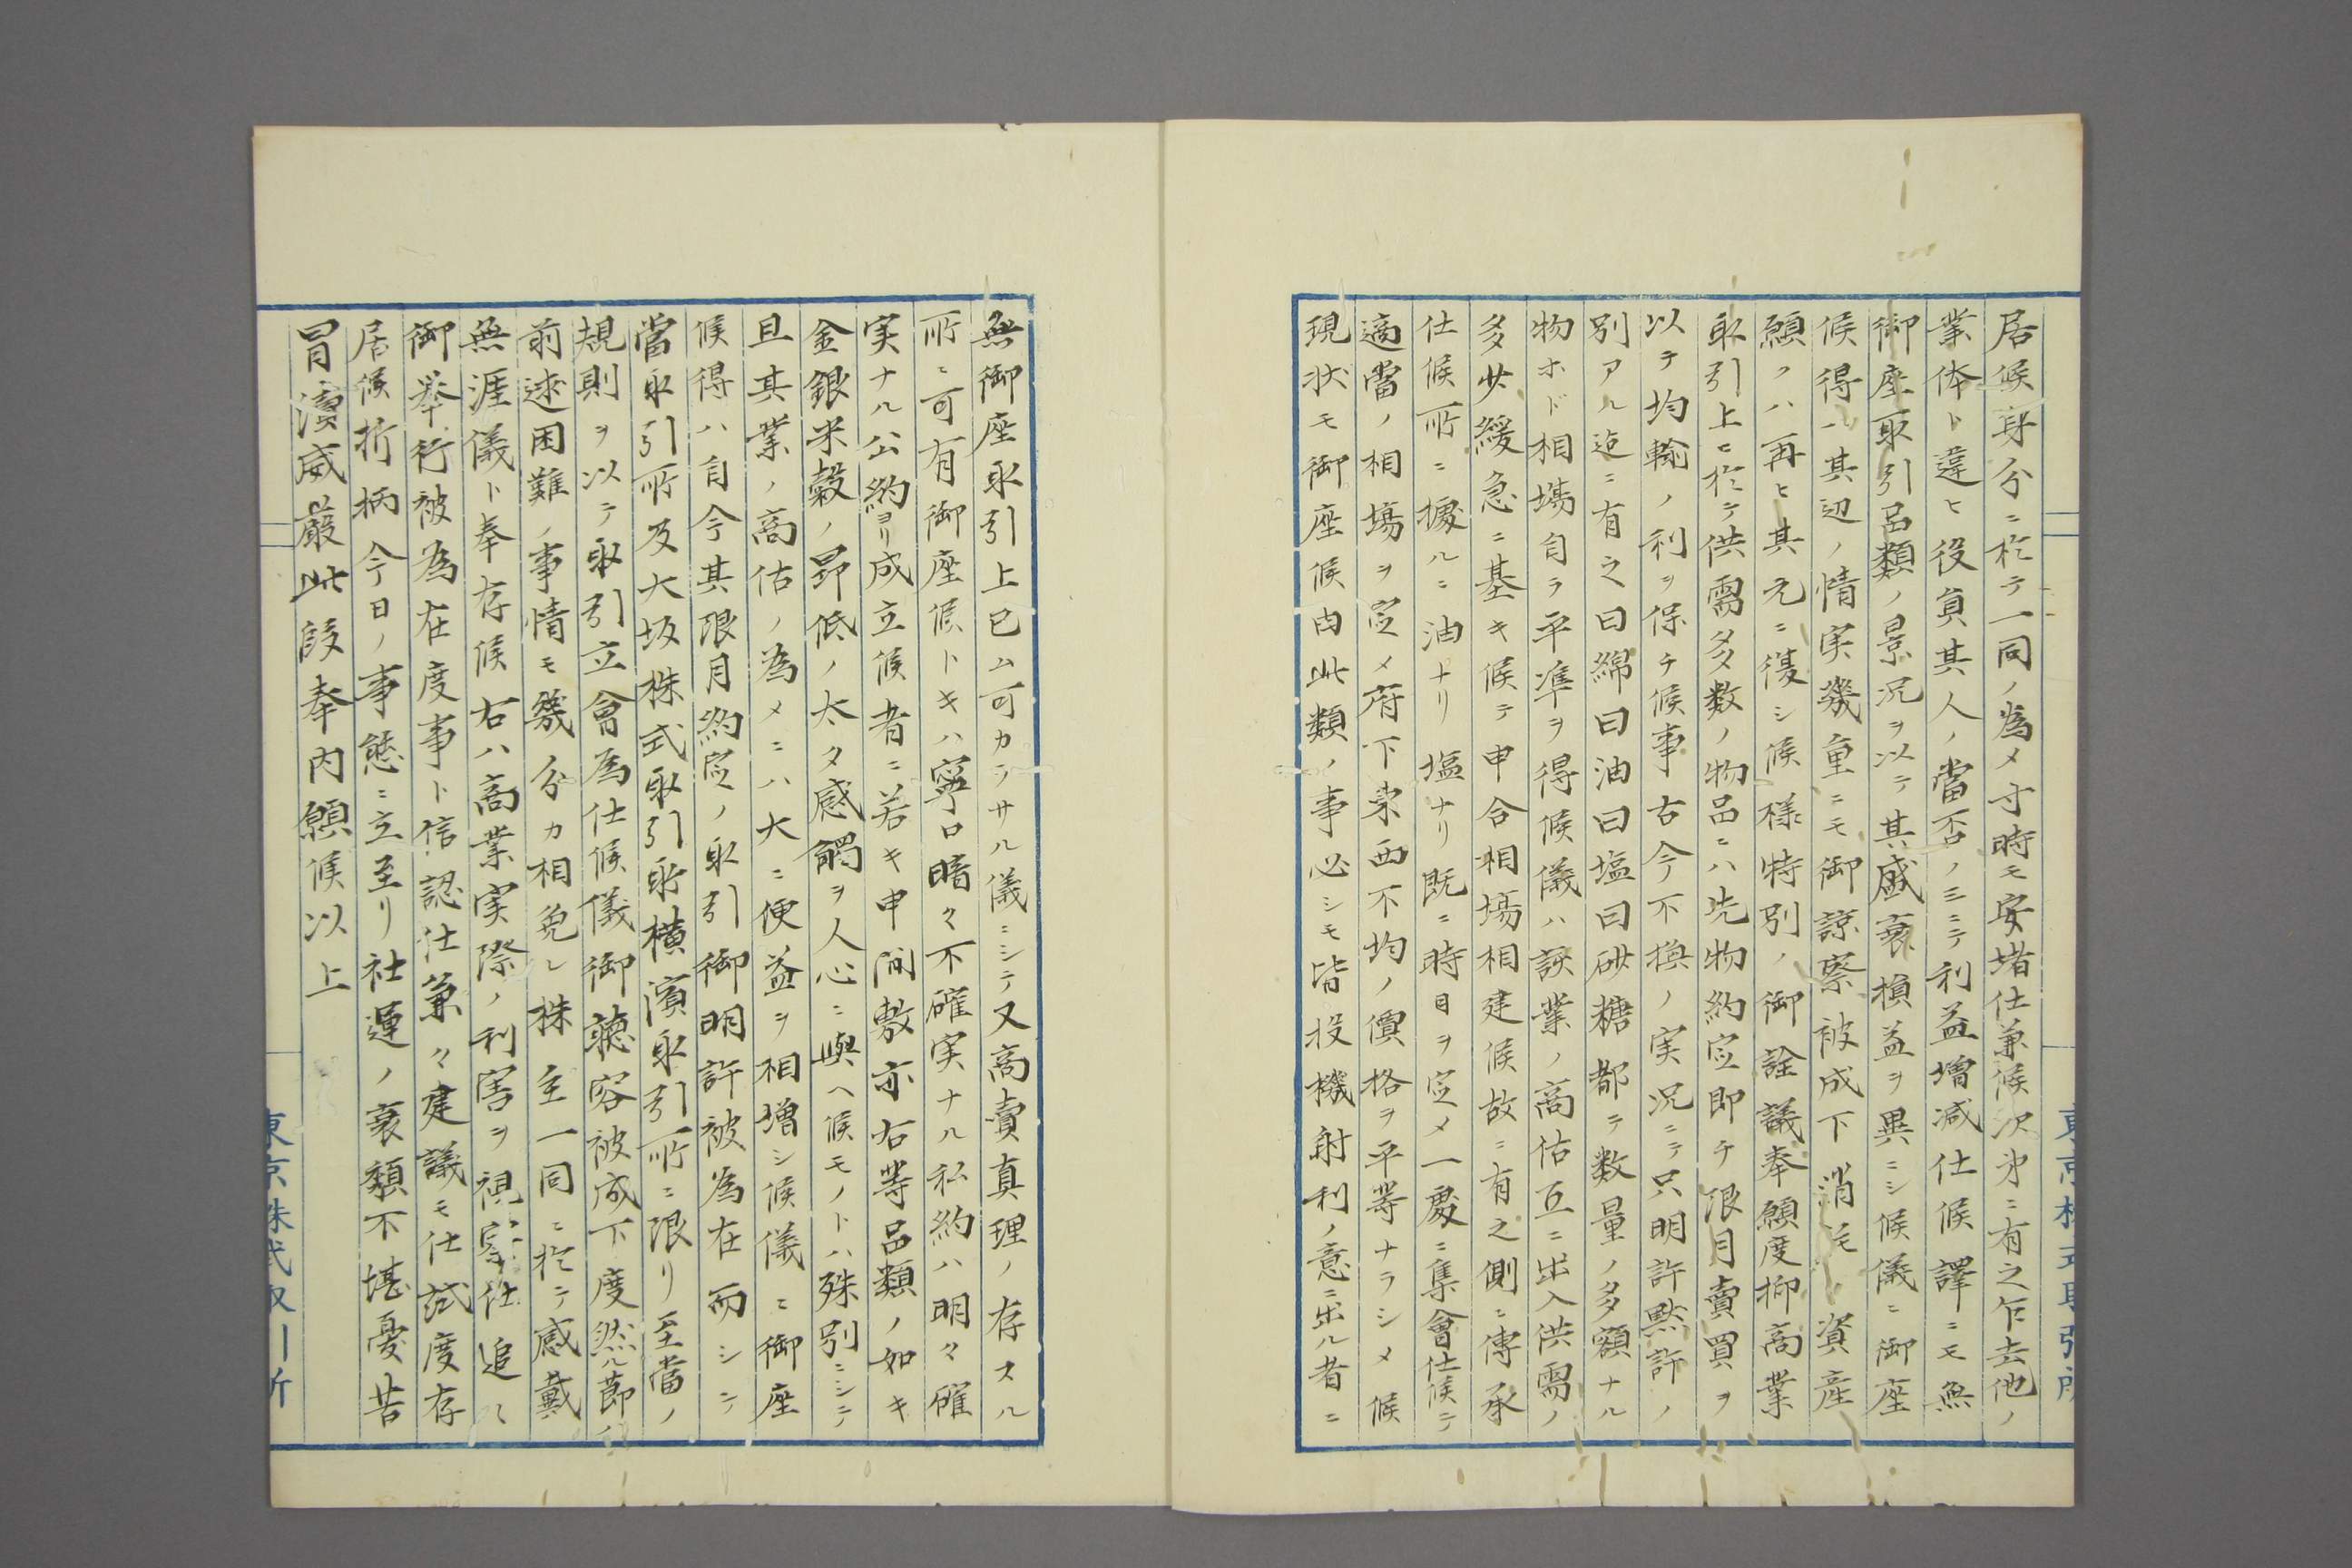 居候身分ニ於テ一同ノ為メ寸時モ安堵仕兼候次第ニ有之乍去他ノ
業体ト違ヒ役員其人ノ當否ノミニテ利益増減仕候譯ニモ無
御座取引品類ノ景況ヲ以テ其盛衰損益ヲ異ニシ候儀ニ御座
候得ハ其辺ノ情実幾重ニモ御諒察被成下消耗ノ資産
願クハ再ヒ其元ニ復シ候様特別ノ御詮議奉願度抑商業
取引上ニ於テ供需多数ノ物品ニハ先物約定即チ限月賣買ヲ
以テ均輸ノ利ヲ保チ候事古今不換ノ実况ニテ只明許黙許ノ
別アル迄ニ有之曰綿曰油曰塩曰砂糖都テ数量ノ多額ナル
物ホド相場自ラ平準ヲ得候儀ハ該業ノ商估互ニ出入供需ノ
多少緩急ニ基キ候テ申合相場相建候故ニ有之側ニ傳承
仕候所ニ據ルニ油ナリ塩ナリ既ニ時日ヲ定メ一處ニ集會仕候テ
適當ノ相場ヲ定メ府下東西不均ノ價格ヲ平等ナラシメ候
現状モ御座候由此類ノ事必シモ皆投機射利ノ意ニ出ル者ニ
東京株式取引所
無御座取引上已ム可カラサル儀ニシテ又商賣真理ノ存スル
所ニ可有御座候トキハ寧ロ暗々不確実ナル私約ハ明々確
実ナル公約ヨリ成立候者ニ若キ申間敷亦右等品類ノ如キ
金銀米穀ノ昂低ノ太タ感觸ヲ人心ニ與ヘ候モノトハ殊別ニシテ
且其業ノ商估ノ為メニハ大ニ便益ヲ相増シ候儀ニ御座
候得ハ自今其限月約定ノ取引御明許被為在而シテ
當取引所及大坂株式取引所横濱取引所ニ限リ至當ノ
規則ヲ以テ取引立會為仕候儀御聴容被成下度然ル節ハ
前述困難ノ事情モ幾分カ相免レ株主一同ニ於テ感戴
無涯儀ト奉存候右ハ商業実際ノ利害ヲ視察仕追々
御挙行被為在度事ト信認仕兼々建議モ仕試度存
居候折柄今日ノ事態ニ立至リ社運ノ衰頽不堪憂苦
冒瀆威嚴此段奉内願候以上
東京株式取引所